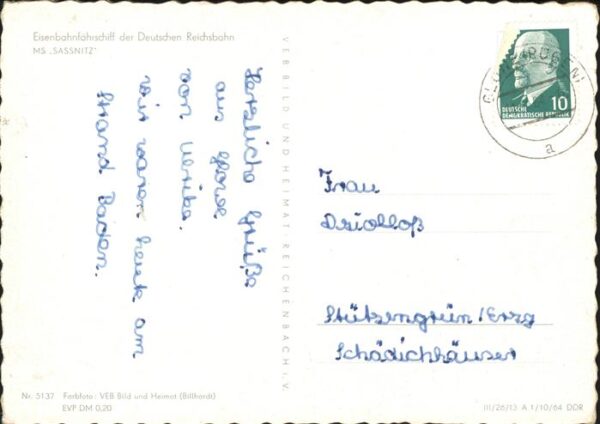 Eisenbahnfährschiff der Deutschen Reichsbahn
MS „SASSNITZ"
Herzliche Grüße
aus Glowe
von Ulrike.
Wir waren heute am
Strand Baden.
VEB BILD UND HEIMAT · REICHENBACH i. V.
DEUTSCHE
DEMOKRATISCHE REPUBLIK
10
GLOWE (RÜGEN)
a
Frau
Stützengrün/Erzg
Schädichhäuser
Nr. 5137 Farbfoto: VEB Bild und Heimat (Billhardt)
EVP DM 0,20
III/26/13 A 1/10/64 DDR